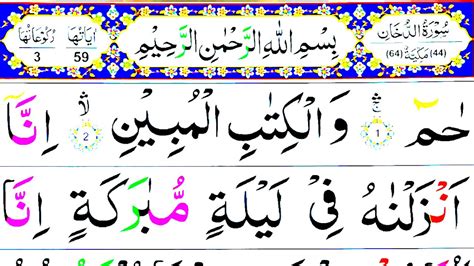 سُوْرَةُ الدُّخَانِ
مَكِّيَّةٌ (64) (44)
بِسْمِ اللّٰهِ الرَّحْمٰنِ الرَّحِيْمِ
اٰيَاتُهَا رُكُوْعَاتُهَا
59 3
حٰمٓ ۚۛ 1 وَ الْكِتٰبِ الْمُبِيْنِ ۙۛ 2 اِنَّاۤ
اَنْزَلْنٰهُ فِىْ لَيْلَةٍ مُّبٰرَكَةٍ اِنَّا